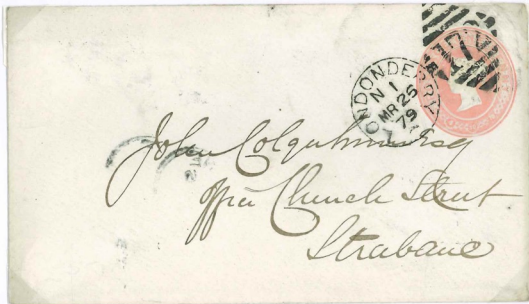 LONDONDERRY
N 1
MR 26
79
John Colquhoun Esq
Upper Church Street
Strabane